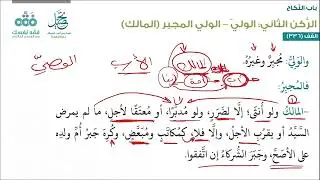 باب النكاح
الركن الثاني: الولي - الولي المجبر (المالك)
الفقرة (٣٣٦)
فقه نفسك
الوصيّ
الأب
المالك
والوَليُّ: مُجبِرٌ وغيرُه:
أب
أمة
فالمُجبِرُ:
-المالكُ ولو أُنثَى؛ إلَّا لضَرَرٍ، ولو مُدبَّرًا، أو مُعتَقًا لأجلٍ؛ ما لم يمرض
السَّيِّدُ أو يقرُبِ الأجلُ، وإلَّا فلا؛ كمُكاتَبٍ ومُبعَّضٍ، وكُرِهَ جبرُ أمِّ ولدِه
على الأصَحِّ، وجَبَرَ الشُّركاءُ إن اتَّفقوا.